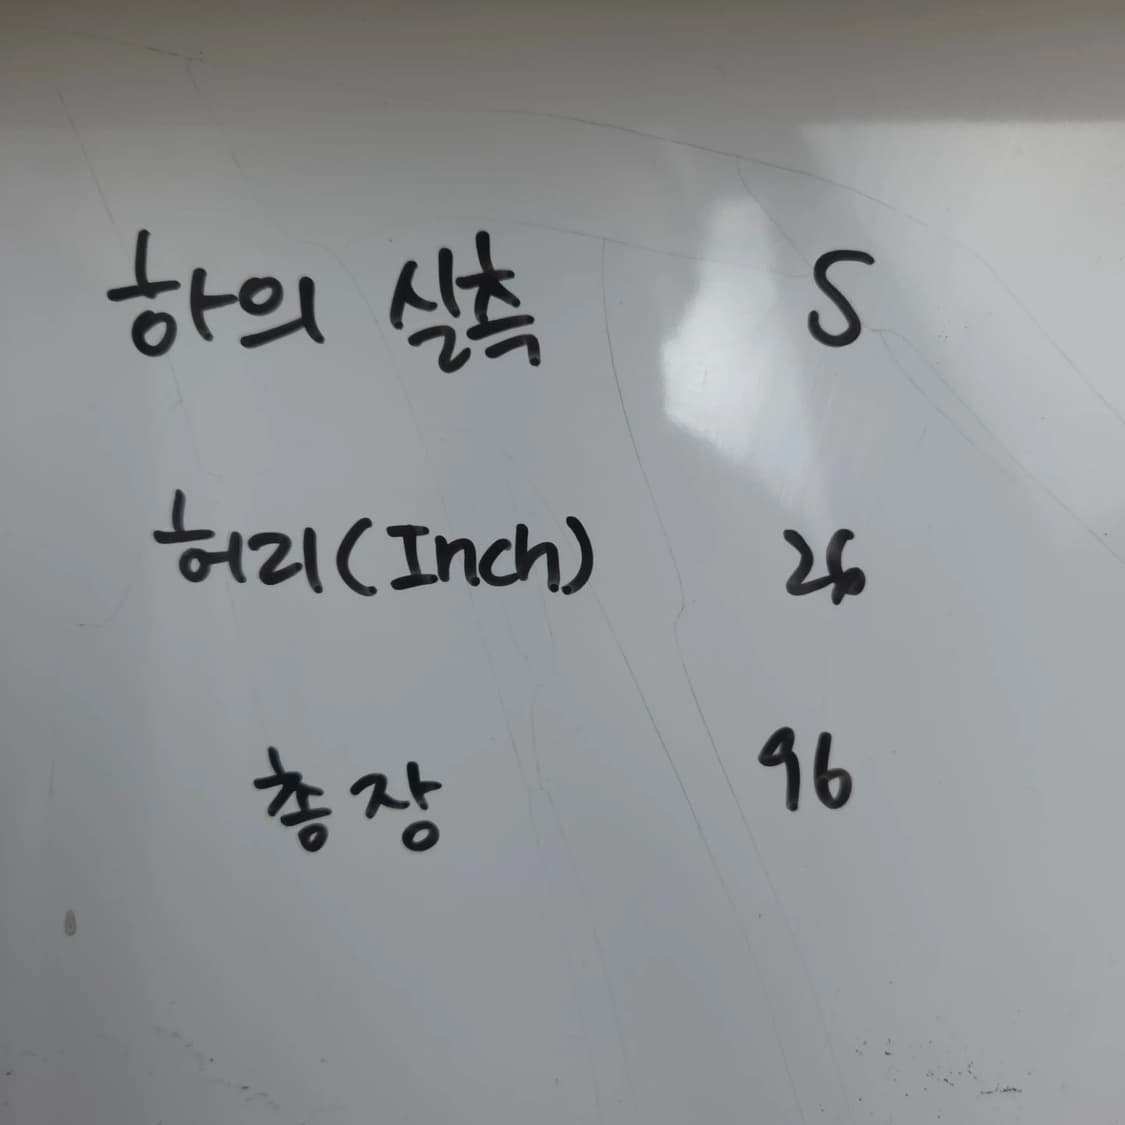 하의 실측 S
허리(Inch) 26
총장 96